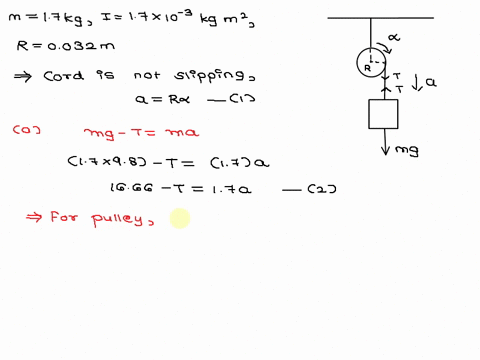 m = 1.7 kg, I = 1.7 × 10⁻³ kg m²,
R = 0.032 m
⇒ Cord is not slipping,
a = Rα — (1)
(a) mg - T = ma
(1.7 × 9.8) - T = (1.7) a
16.66 - T = 1.7a — (2)
⇒ For pulley,
α
R
T
T
a
mg